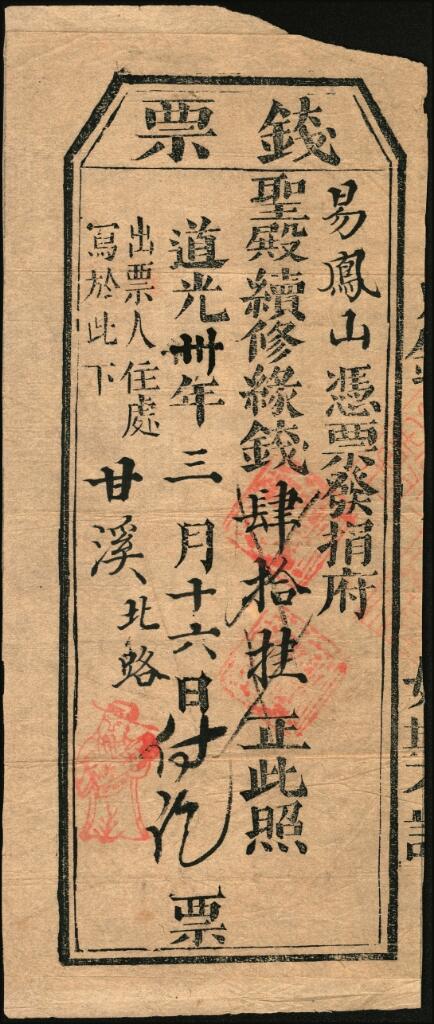 錢票
易鳳山憑票發捐府
聖殿續修緣錢肆拾挂正此照
道光卅年三月十六日付訖票
出票人住處
寫於此下
甘溪北路